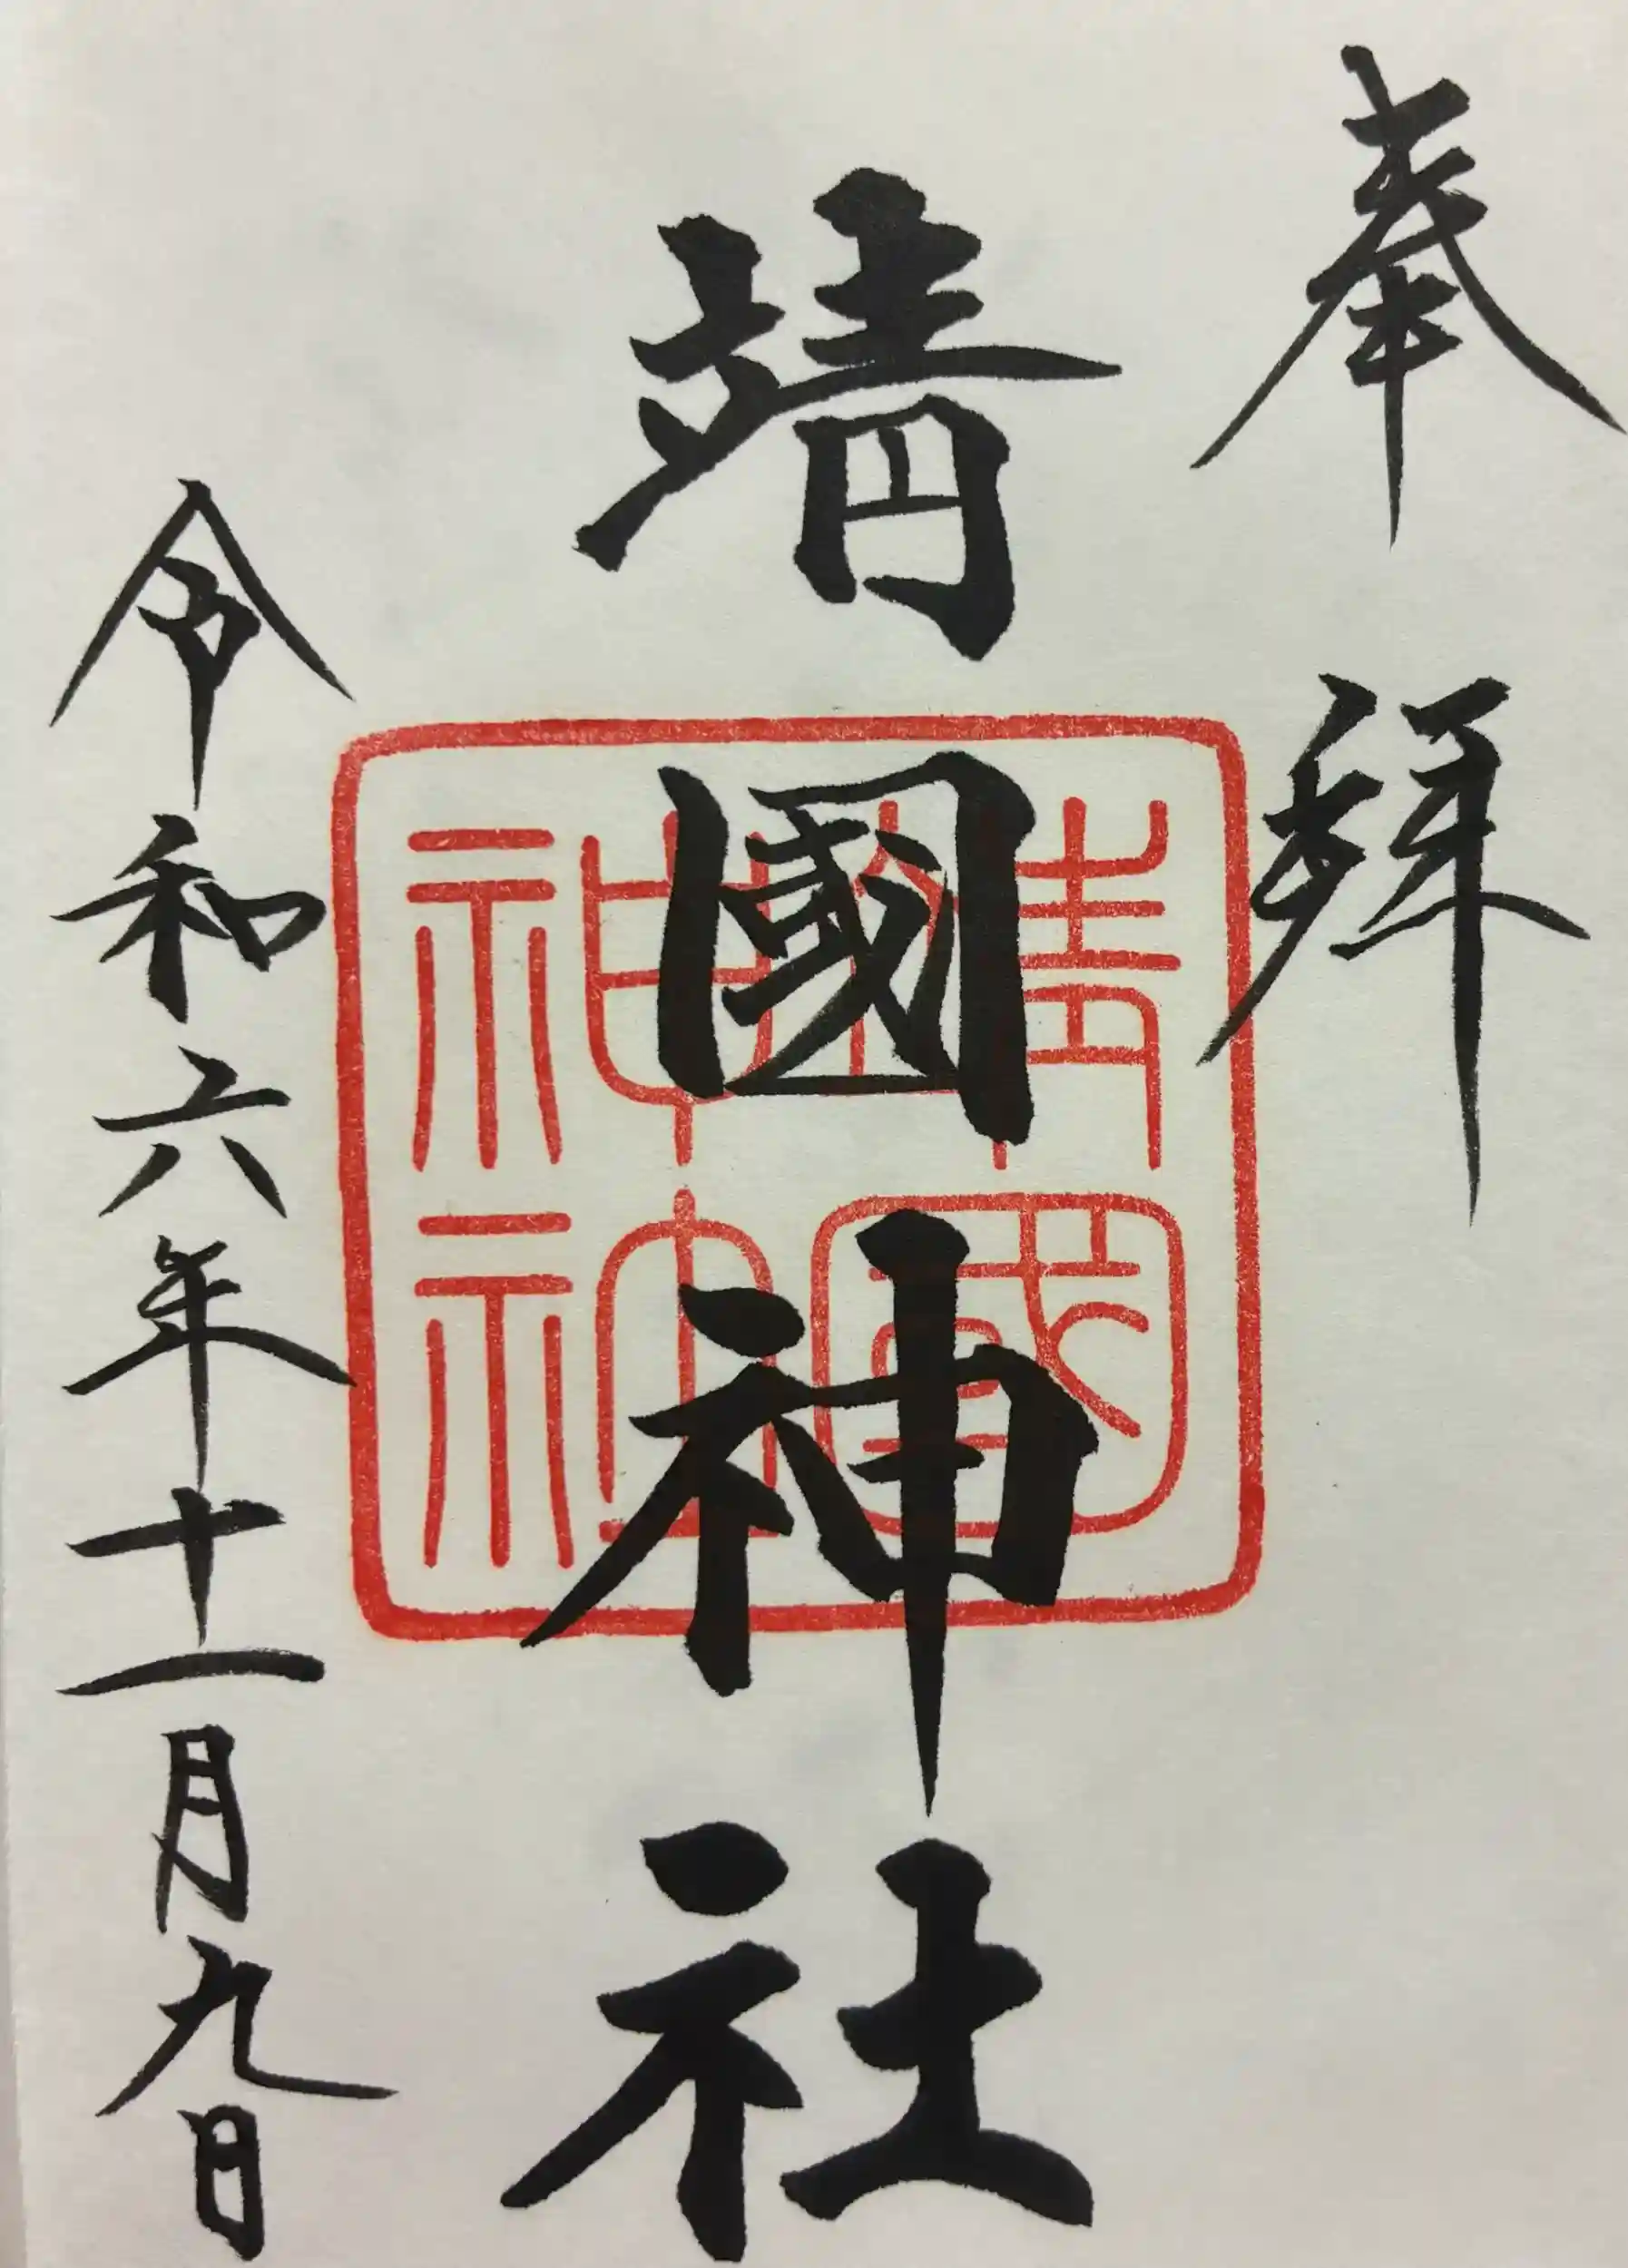 奉拜
靖國神社
令和六年十一月九日
靖國
神社